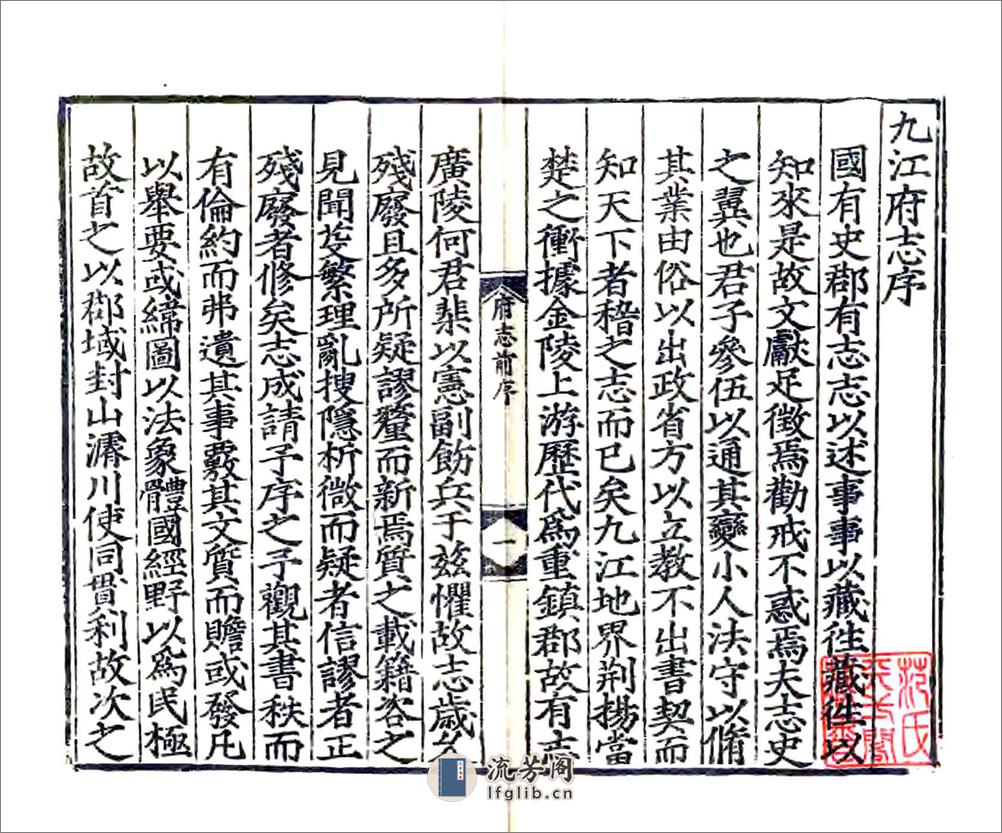 九江府志序
國有史郡有志志以述事事以藏徃藏徃以
知來是故文獻足徵焉勸戒不惑焉夫志史
之翼也君子參伍以通其變小人法守以脩
其業由俗以出政省方以立教不出書契而
知天下者稽之志而已矣九江地界荆揚當
楚之衝據金陵上游歷代爲重鎮郡故有志
府志前序
一
廣陵何君棐以憲副飭兵于兹懼故志歲久
殘廢且多所疑謬釐而新焉質之載籍咨之
見聞芟繁理亂搜隱析微而疑者信謬者正
殘廢者修矣志成請予序之予觀其書秩而
有倫約而弗遺其事覈其文質而贍或發凡
以舉要或緯圖以法象體國經野以爲民極
故首之以郡域封山濬川使同貫利故次之
范氏
天一閣
流芳阁
lfglib.cn